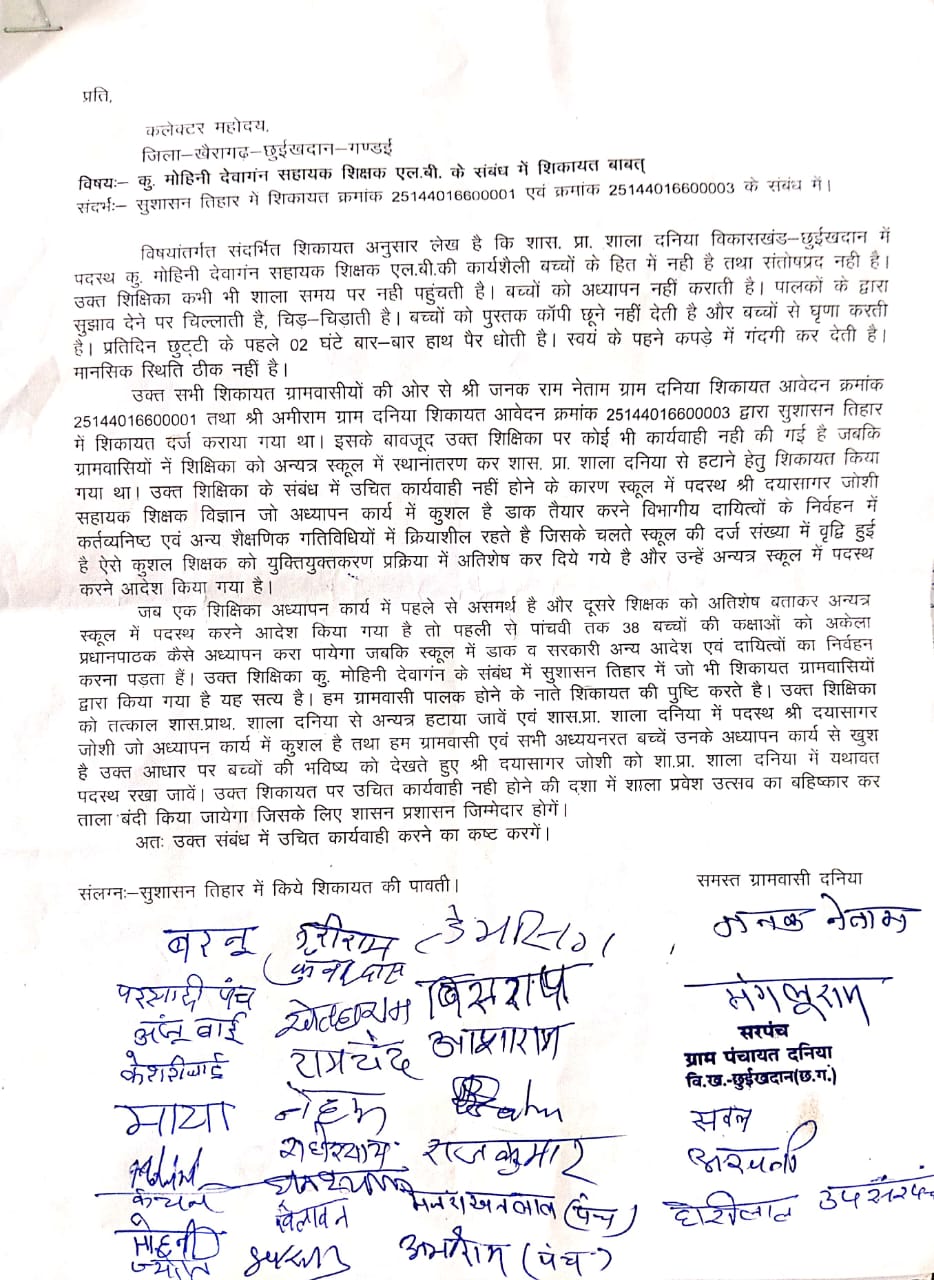 प्रति,
कलेक्टर महोदय,
जिला–खैरागढ़–छुईखदान–गण्डई
विषयः– कु. मोहिनी देवागंन सहायक शिक्षक एल.बी. के संबंध में शिकायत बाबत्
संदर्भः– सुशासन तिहार में शिकायत क्रमांक 25144016600001 एवं क्रमांक 25144016600003 के संबंध में।
विषयांतर्गत संदर्भित शिकायत अनुसार लेख है कि शास. प्रा. शाला दनिया विकाराखंड–छुईखदान में
पदस्थ कु. मोहिनी देवागंन सहायक शिक्षक एल.बी.की कार्यशैली बच्चों के हित में नही है तथा संतोषप्रद नही है।
उक्त शिक्षिका कभी भी शाला समय पर नही पहुंचती है। बच्चों को अध्यापन नहीं कराती है। पालकों के द्वारा
सुझाव देने पर चिल्लाती है, चिड़–चिड़ाती है। बच्चों को पुस्तक कॉपी छूने नहीं देती है और बच्चों से घृणा करती
है। प्रतिदिन छुट्टी के पहले 02 घंटे बार–बार हाथ पैर धोती है। स्वयं के पहने कपड़े में गंदगी कर देती है।
मानसिक स्थिति ठीक नहीं है।
उक्त सभी शिकायत ग्रामवासीयों की ओर से श्री जनक राम नेताम ग्राम दनिया शिकायत आवेदन क्रमांक
25144016600001 तथा श्री अमीराम ग्राम दनिया शिकायत आवेदन क्रमांक 25144016600003 द्वारा सुशासन तिहार
में शिकायत दर्ज कराया गया था। इसके बावजूद उक्त शिक्षिका पर कोई भी कार्यवाही नही की गई है जबकि
ग्रामवासियों नें शिक्षिका को अन्यत्र स्कूल में स्थानांतरण कर शास. प्रा. शाला दनिया से हटाने हेतु शिकायत किया
गया था। उक्त शिक्षिका के संबंध में उचित कार्यवाही नहीं होने के कारण स्कूल में पदस्थ श्री दयासागर जोशी
सहायक शिक्षक विज्ञान जो अध्यापन कार्य में कुशल है डाक तैयार करने विभागीय दायित्वों के निर्वहन में
कर्तव्यनिष्ठ एवं अन्य शैक्षणिक गतिविधियों में क्रियाशील रहते है जिसके चलते स्कूल की दर्ज संख्या में वृद्धि हुई
है ऐसे कुशल शिक्षक को युक्तियुक्तकरण प्रक्रिया में अतिशेष कर दिये गये है और उन्हें अन्यत्र स्कूल में पदस्थ
करने आदेश किया गया है।
जब एक शिक्षिका अध्यापन कार्य में पहले से असमर्थ है और दूसरे शिक्षक को अतिशेष बताकर अन्यत्र
स्कूल में पदस्थ करने आदेश किया गया है तो पहली से पांचवी तक 38 बच्चों की कक्षाओं को अकेला
प्रधानपाठक कैसे अध्यापन करा पायेगा जबकि स्कूल में डाक व सरकारी अन्य आदेश एवं दायित्वों का निर्वहन
करना पड़ता हैं। उक्त शिक्षिका कु. मोहिनी देवागंन के संबंध में सुशासन तिहार में जो भी शिकायत ग्रामवासियों
द्वारा किया गया है यह सत्य है। हम ग्रामवासी पालक होने के नाते शिकायत की पुष्टि करते है। उक्त शिक्षिका
को तत्काल शास.प्राथ. शाला दनिया से अन्यत्र हटाया जावें एवं शास.प्रा. शाला दनिया में पदस्थ श्री दयासागर
जोशी जो अध्यापन कार्य में कुशल है तथा हम ग्रामवासी एवं सभी अध्ययनरत बच्चें उनके अध्यापन कार्य से खुश
है उक्त आधार पर बच्चों की भविष्य को देखते हुए श्री दयासागर जोशी को शा.प्रा. शाला दनिया में यथावत
पदस्थ रखा जावें। उक्त शिकायत पर उचित कार्यवाही नही होने की दशा में शाला प्रवेश उत्सव का बहिष्कार कर
ताला बंदी किया जायेगा जिसके लिए शासन प्रशासन जिम्मेदार होगें।
अतः उक्त संबंध में उचित कार्यवाही करने का कष्ट करगें।
संलग्नः–सुशासन तिहार में किये शिकायत की पावती।
समस्त ग्रामवासी दनिया
जनक नेताम
बरनू
परसादी पंच
बिसराम
मंगलूराम
सरपंच
ग्राम पंचायत दनिया
वि.ख.-छुईखदान(छ.ग.)
केशरीबाई रामचंद आशाराम
माया
राधेश्याम राजकुमार
कंचन घनश्याम
खेलावन मनराखनलाल (पंच) होरीलाल उपसरपंच
मोहनी
ज्योति अमीराम (पंच)